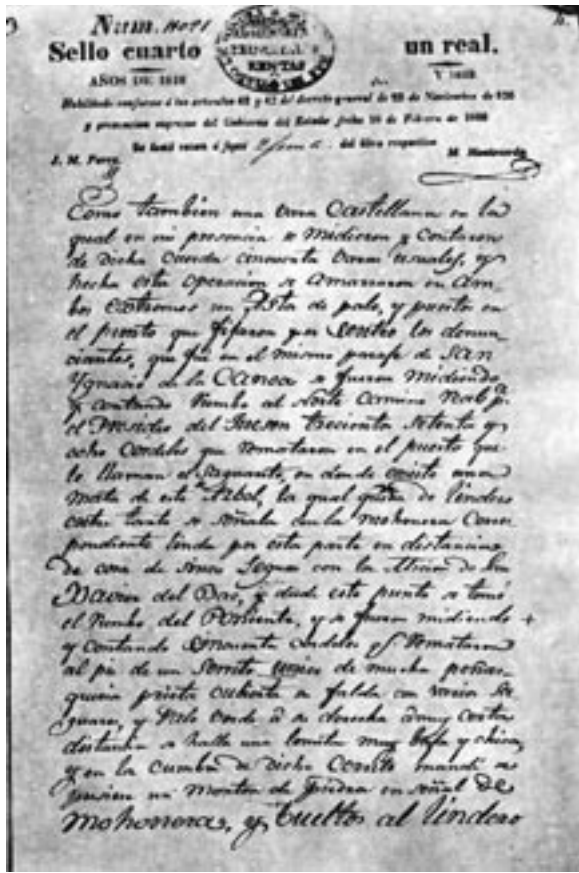 Num.
Sello cuarto un real.
AÑOS DE 1828 Y 1829
Habilitado conforme á los artículos y del decreto general de 23 de Noviembre de
y prevencion suprema del Gobierno del Estado fecha de Febrero de
J. M. Perez
del libro respectivo
M. Monteverde
Como tambien una vara Castellana en la
qual en mi presencia se midieron y contaron
de dicha cuerda cincuenta varas usuales, y
hecha esta operacion se amarraron en am-
bos extremos un Asta de palo, y puestos en
el punto que fijaron por centro los denun-
ciantes, que fué en el mismo paraje de San
Ygnacio de la Canoa se fueron midiendo
y contando Rumbo al Norte camino Real pa.
el Presidio del Tucson trecientos setenta y
ocho Cordeles que remataron en el puesto que
le llaman el Saguarito, en donde
mata de este Arbol, la qual de lindero
tanto se señala la mohonera corres-
pondiente linda por esta parte en distancia
de cosa de leguas con la Mision de San
Xavier del Bac, y desde este punto se tomó
el Rumbo del Poniente, y se fueron midiendo
y contando cordeles remataron
al pie de un Serrito de mucha peñas-
queria prieta su falda con varios Sa-
guaros, y Palo verde á su derecha á muy corta
distancia se halla una lomita muy baja y chica,
y en la cumbre de dicho Cerrito mandé se
pusiera un monton de piedra en señal de
mohonera, y bueltos al lindero